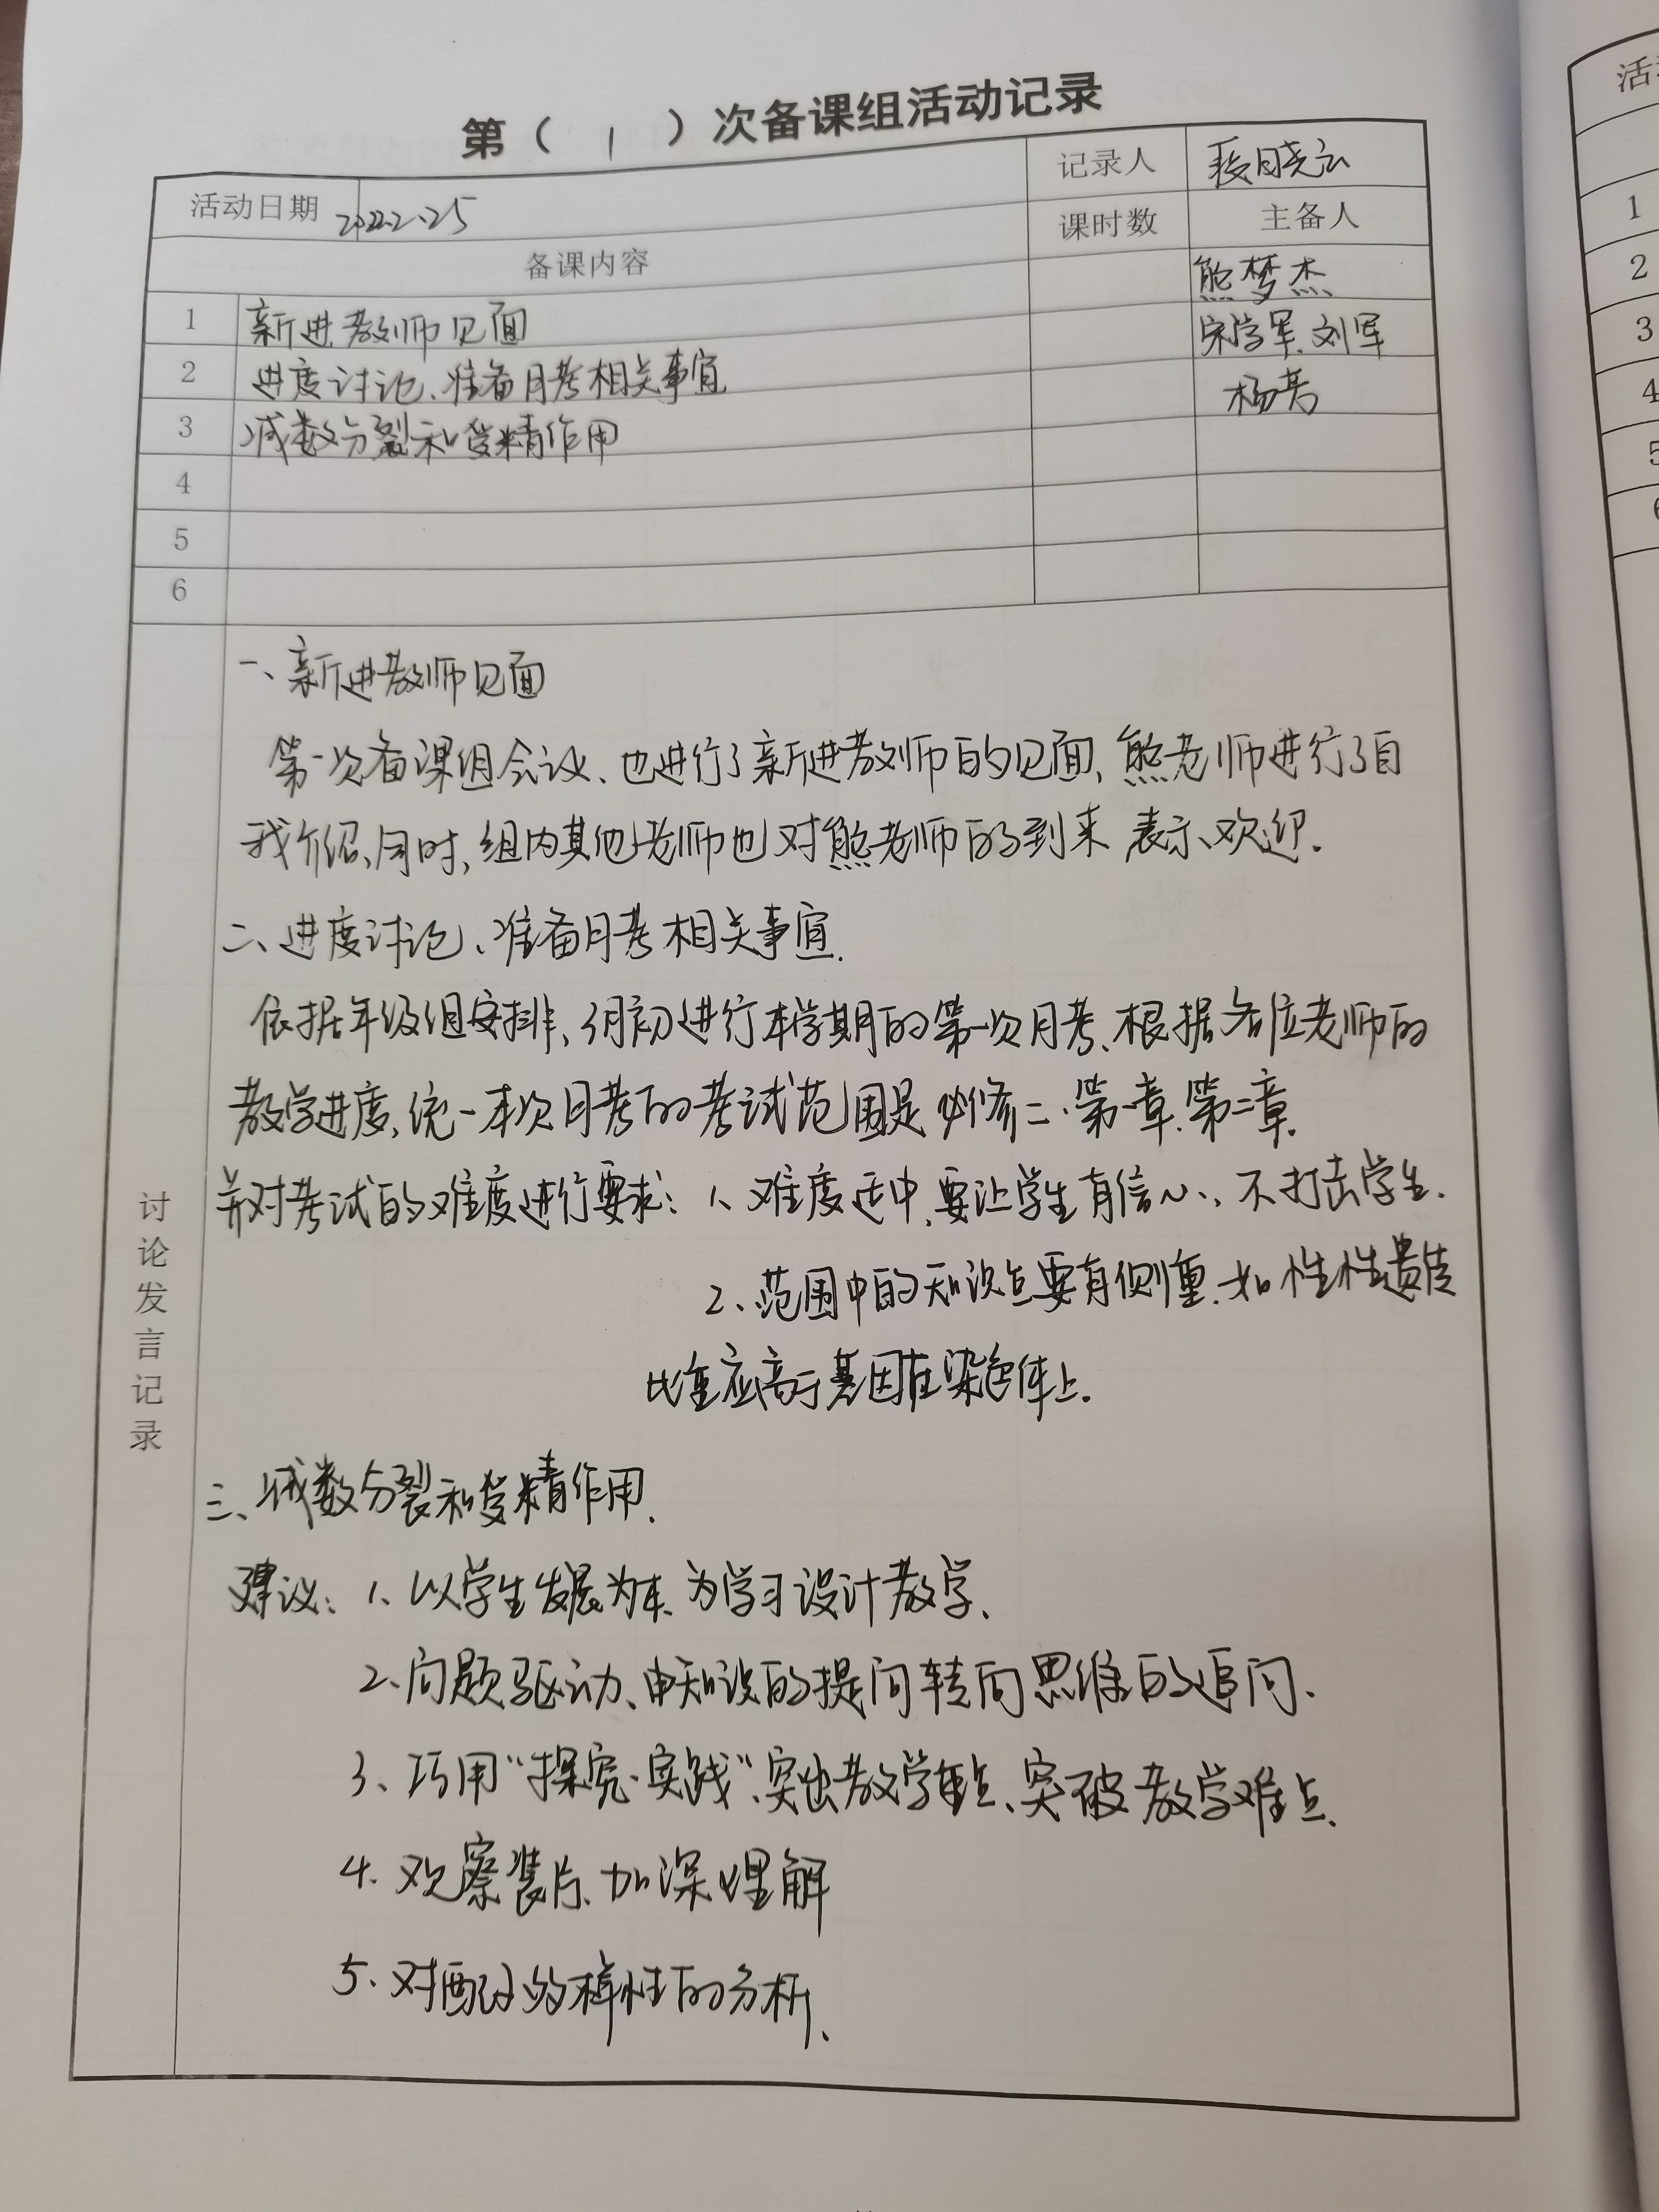 第（ 1 ）次备课组活动记录
活动日期 2022.2.25 记录人 段晓云
备课内容 课时数 主备人
1 新进教师见面 熊梦杰
2 进度讨论、准备月考相关事宜 宋学军、刘军
3 减数分裂和受精作用 杨芳
4
5
6
讨论发言记录
一、新进教师见面
第一次备课组会议、也进行了新进教师的见面，熊老师进行了自
我介绍、同时，组内其他老师也对熊老师的到来表示欢迎.
二、进度讨论、准备月考相关事宜.
依据年级组安排、3月初进行本学期的第一次月考、根据各位老师的
教学进度，统一本次月考的考试范围是必修二.第一章.第二章.
并对考试的难度进行要求：1、难度适中，要让学生有信心、不打击学生.
2、范围中的知识点要有侧重.如性性遗传
比重应高于基因在染色体上.
三、减数分裂和受精作用.
建议：1、以学生发展为本、为学习设计教学、
2、问题驱动、由知识的提问转向思维的追问、
3、巧用“探究·实践”、突出教学重点、突破教学难点.
4、观察装片、加深理解
5、对配子多样性的分析、
活
1
2
3
4
5
6